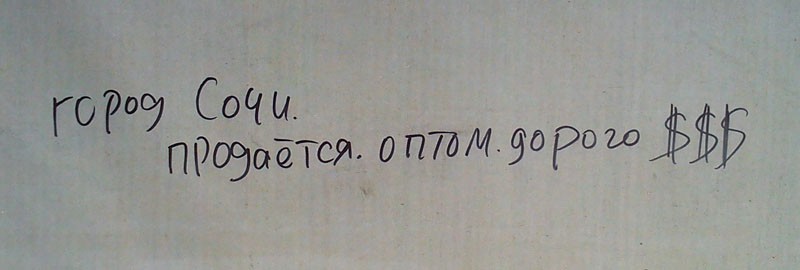 город Сочи.
продаётся. оптом. дорого $$$